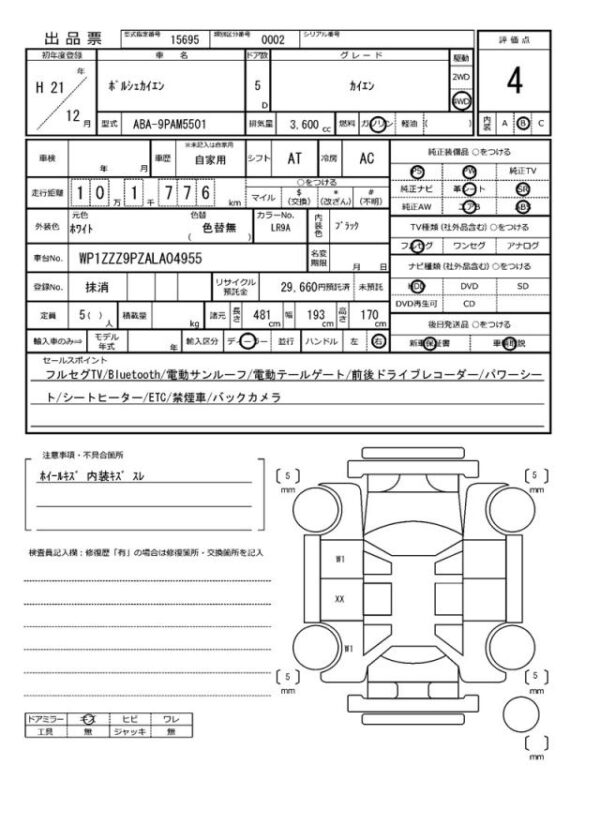 出品票 型式指定番号 15695 類別区分番号 0002 シリアル番号
初年度登録 車名 ドア数 グレード 駆動 評価点
H 21 年 12 月 ポルシェカイエン 5 D カイエン 2WD 4WD 4
型式 ABA-9PAM5501 排気量 3,600 cc 燃料 ガソリン 軽油 ( ) 内装 A B C
車検 年 月 車歴 ※未記入は自家用 自家用 シフト AT 冷房 AC
純正装備品 ○をつける
PS PW 純正TV
純正ナビ 革シート SR
純正AW エアB ABS
走行距離 10万1千776 km ○をつける マイル $ (交換) * (改ざん) # (不明)
外装色 元色 ホワイト 色替 ( 色替無 ) カラーNo. LR9A 内装色 ブラック
TV種類 (社外品含む) ○をつける
フルセグ ワンセグ アナログ
車台No. WP1ZZZ9PZALA04955 名変期限 月 日
ナビ種類 (社外品含む) ○をつける
HDD DVD SD
DVD再生可 CD
登録No. 抹消 リサイクル預託金 29,660円預託済 未預託
定員 5( ) 人 積載量 kg 諸元 長さ 481 cm 幅 193 cm 高さ 170 cm
後日発送品 ○をつける
輸入車のみ⇒ モデル年式 年 輸入区分 ディーラー 並行 ハンドル 左 右
新車保証書 車輌取説
セールスポイント
フルセグTV/Bluetooth/電動サンルーフ/電動テールゲート/前後ドライブレコーダー/パワーシー
ト/シートヒーター/ETC/禁煙車/バックカメラ
注意事項・不具合箇所
ホイールキズ 内装キズ スレ
検査員記入欄：修復歴「有」の場合は修復箇所・交換箇所を記入
( 5 ) mm
( 5 ) mm
W1
XX
W1
( 5 ) mm
( 5 ) mm
( ) mm
ドアミラー キズ ヒビ ワレ
工具 無 ジャッキ 無